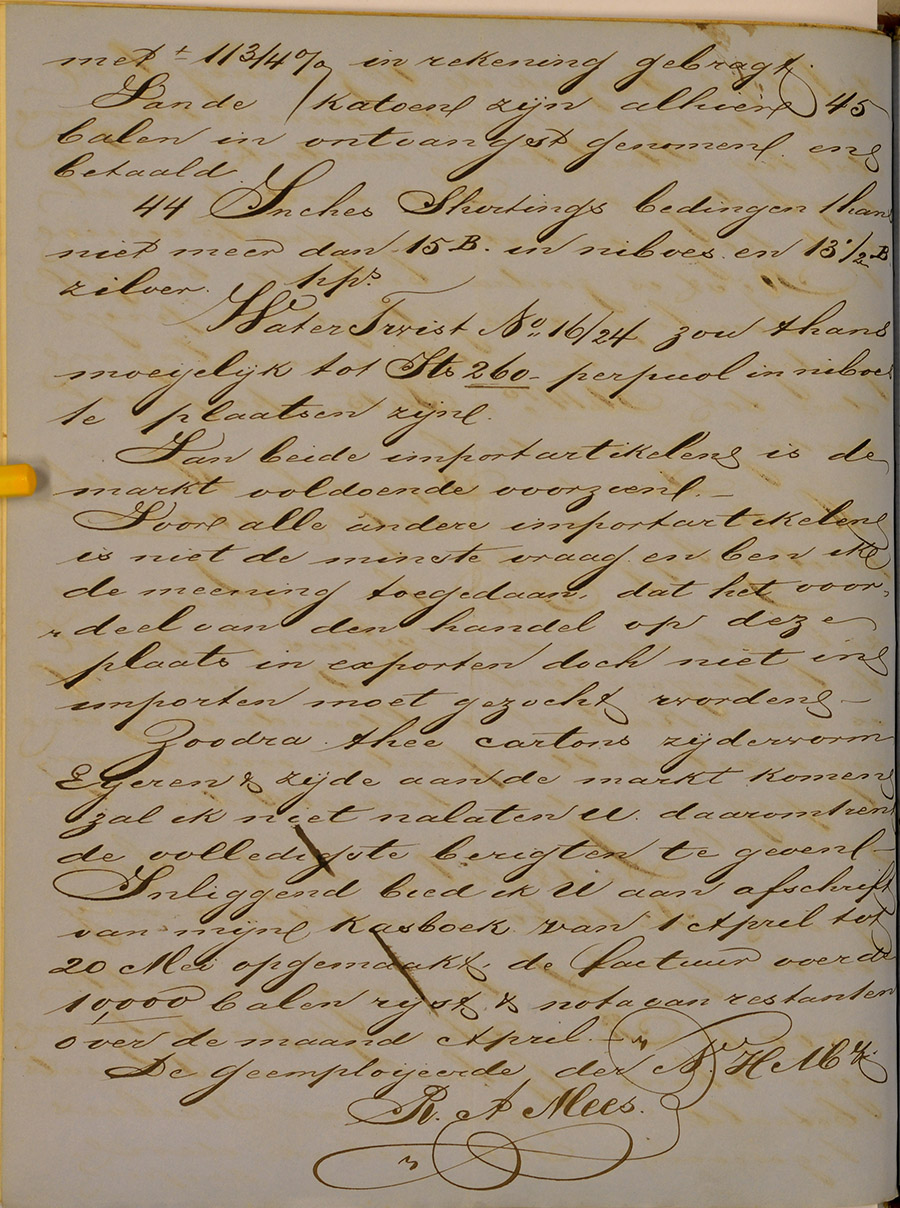 met ± 11 3/4 % in rekening gebragt.
Van de katoen zijn alhier 45
balen in ontvangst genomen en
betaald.
44 Inches Shirtings bedingen thans
niet meer dan 15 B. in niboes en 13 1/2 B
zilver. hps.
Water Twist No. 16/24 zou thans
moeijelijk tot Its 260 - per puol in niboes
te plaatsen zijn.
Van beide importartikelen is de
markt voldoende voorzien. -
Voor alle andere importartikelen
is niet de minste vraag en ben ik
de meening toegedaan, dat het voor-
deel van den handel op deze
plaats in exporten doch niet in
importen moet gezocht worden -
Zoodra thee cartons zijderworm
Eijeren & zijde aan de markt komen
zal ik niet nalaten U. daaromtren
de volledigste berigten te geven -
Inliggend bied ik U aan afschrift
van mijn Kasboek van 1 April tot
20 Mei opgemaakt, de factuur over de
10,000 balen rijst, & nota van restanten
over de maand April. -
De geemployeerde der N. H. Mij.
R. A Mees.